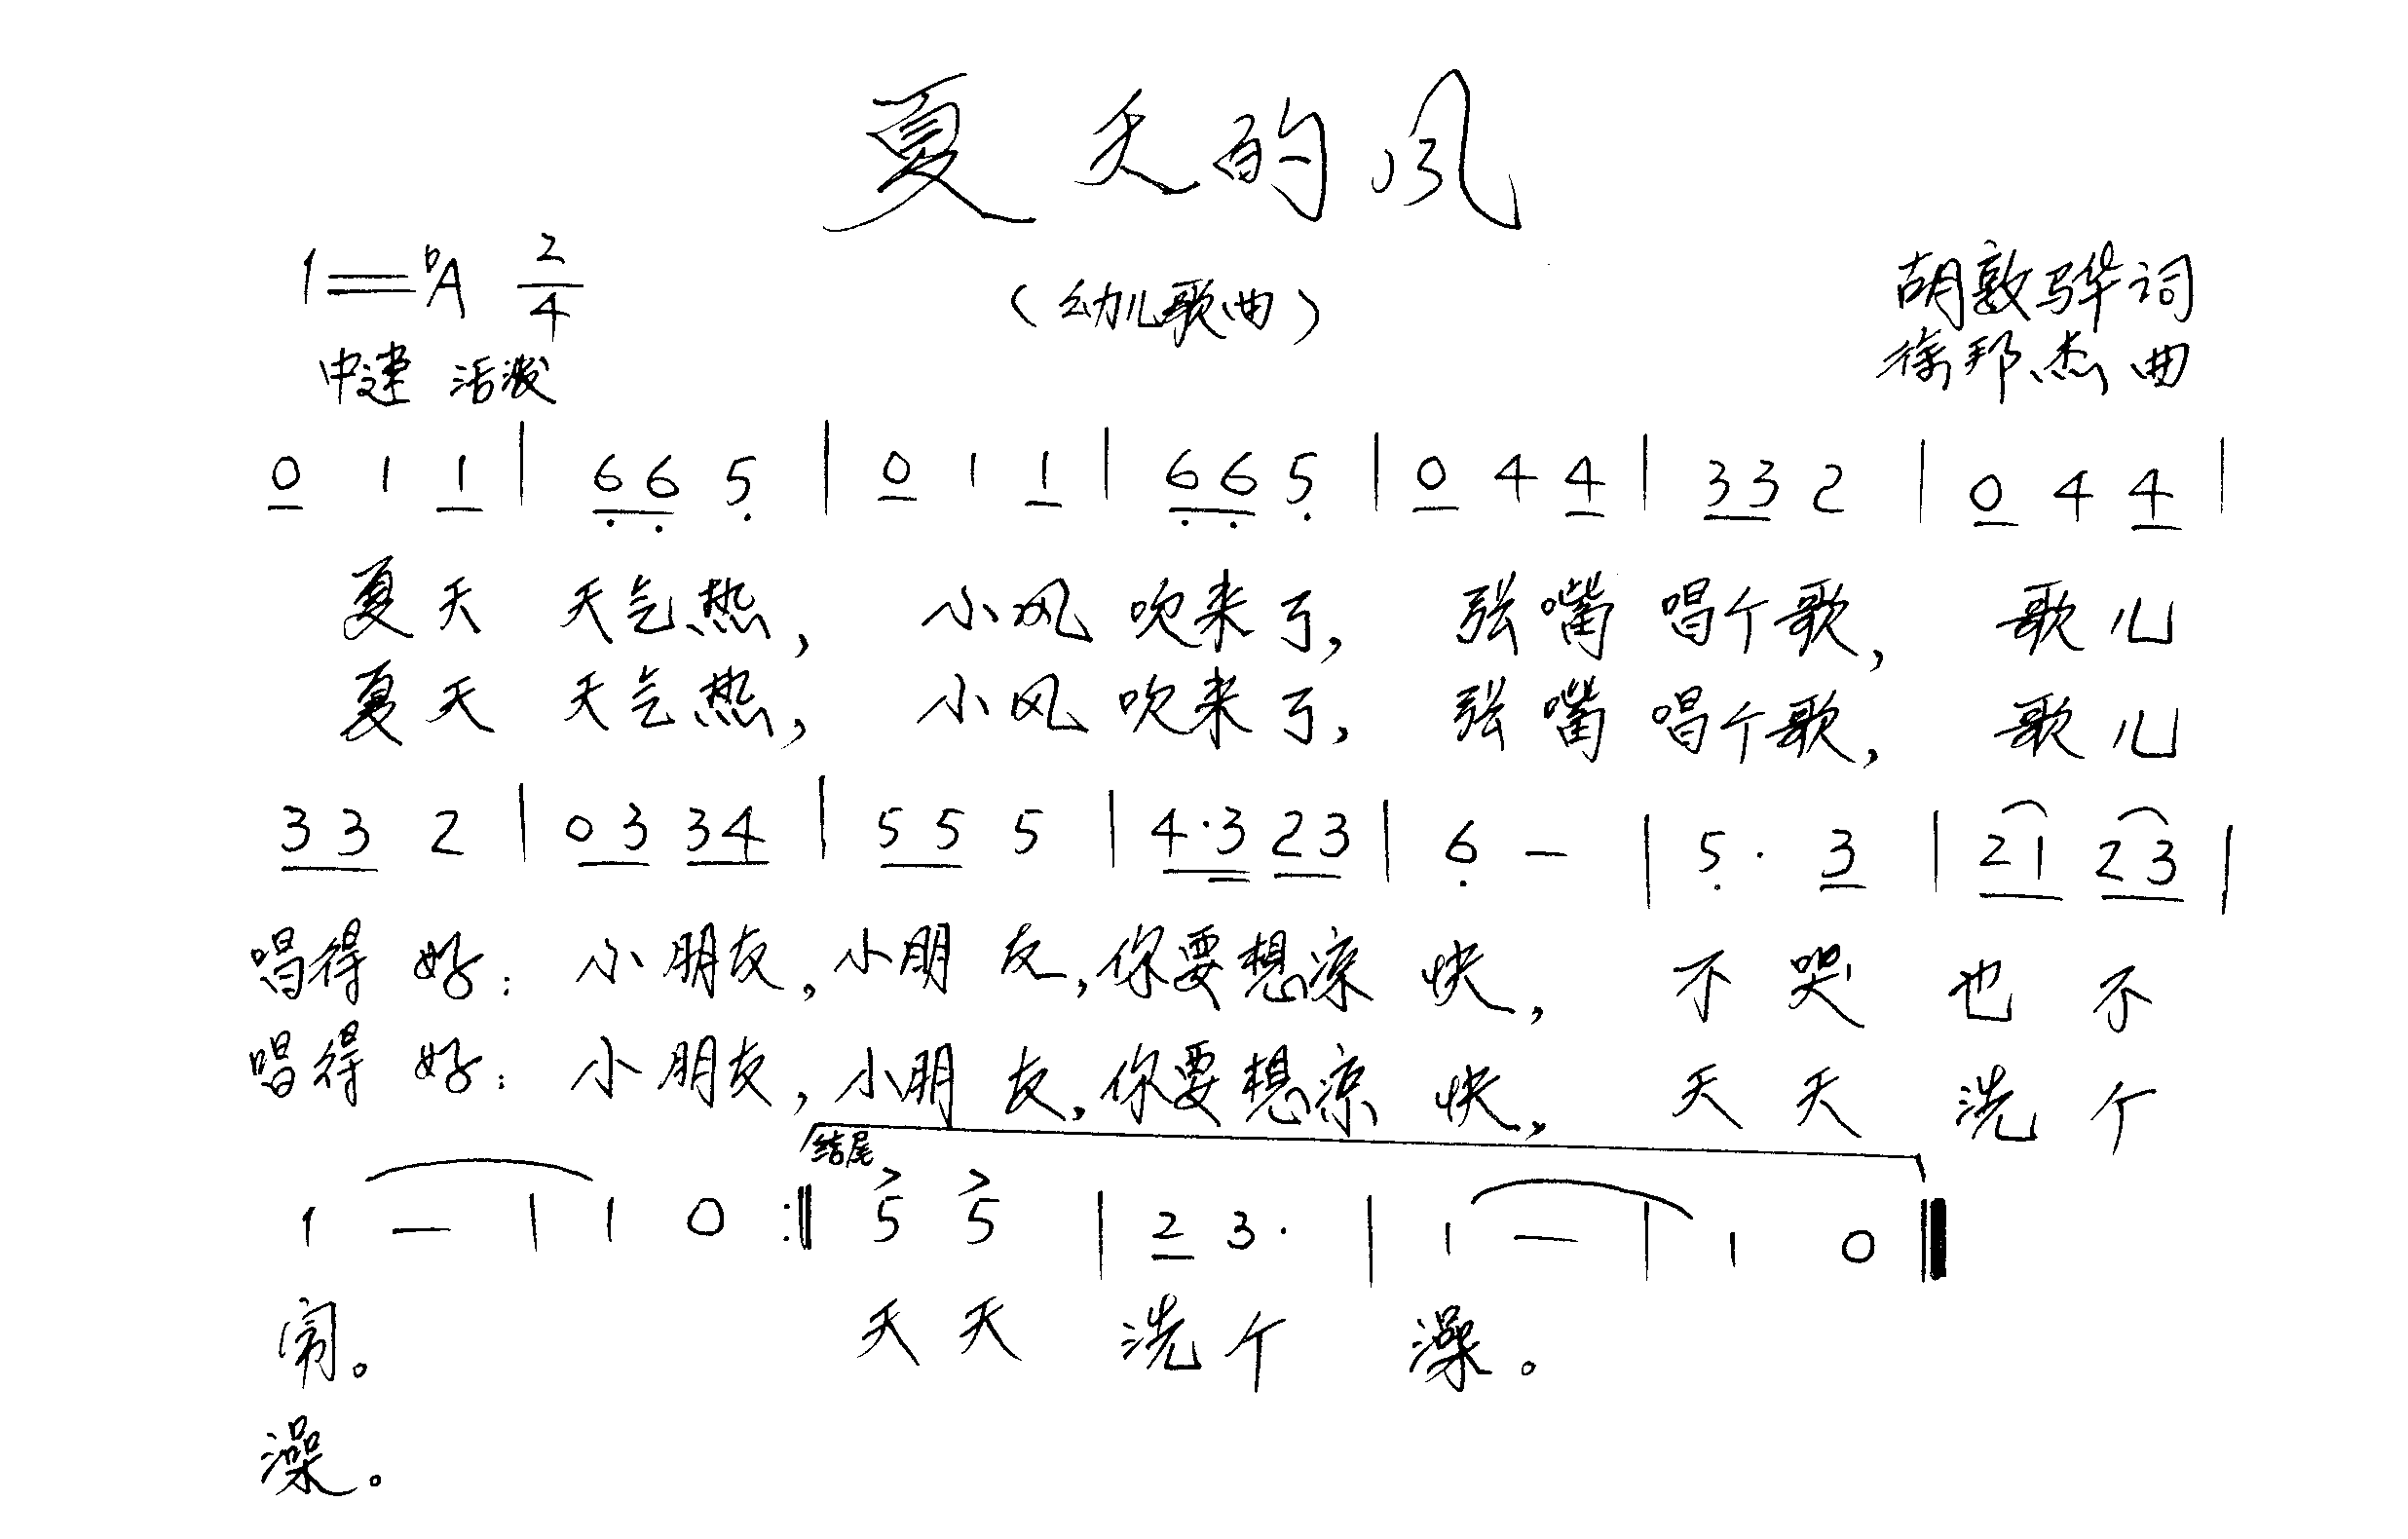 夏天的风
1=♭A 2/4
(幼儿歌曲)
胡敦骅词
中速 活泼
徐邦杰曲
0 1 1 | 6 6 5 | 0 1 1 | 6 6 5 | 0 4 4 | 3 3 2 | 0 4 4 |
夏天 天气热, 小风 吹来了, 张嘴 唱个歌, 歌儿
夏天 天气热, 小风 吹来了, 张嘴 唱个歌, 歌儿
3 3 2 | 0 3 3 4 | 5 5 5 | 4·3 2 3 | 6 – | 5 · 3 | 2 1 2 3 |
唱得 好: 小 朋友, 小朋 友, 你要想凉 快, 不 哭 也 不
唱得 好: 小 朋友, 小朋 友, 你要想凉 快, 天 天 洗 个
结尾
1 – | 1 0 :‖ 5 5 | 2 3 · | 1 – | 1 0 ‖
闹。 天 天 洗 个 澡。
澡。